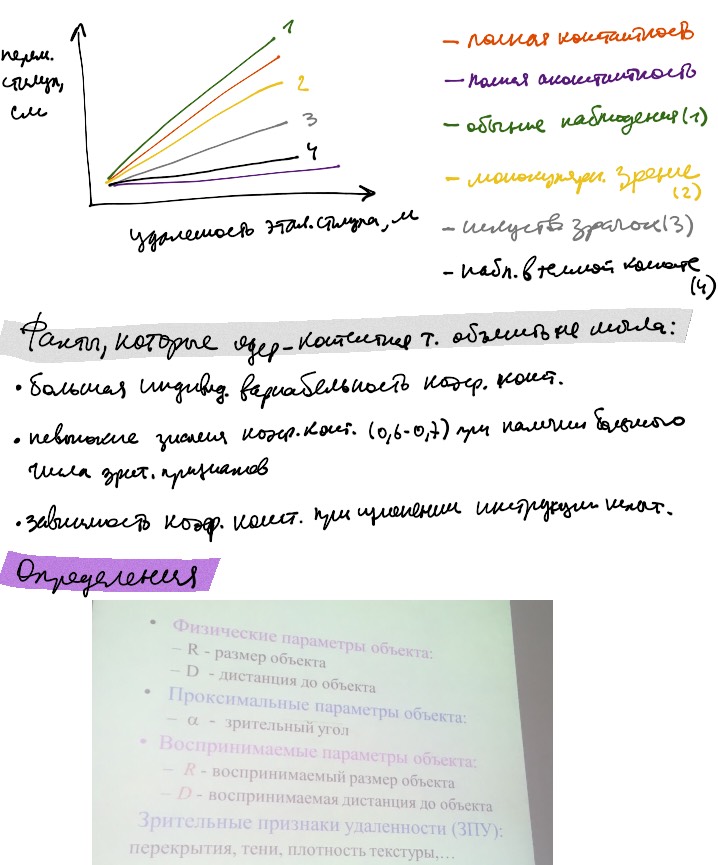 перем.
стимул,
см
1
2
3
4
удаленность этал. стимула, м
– полная константность
– полная аконстантность
– обычные наблюдения (1)
– монокулярн. зрение
(2)
– искуств зрачок (3)
– набл. в темной комнате
(4)
Факты, которые ядер-контекстная т. объяснить не могла:
• большая индивид. вариабельность коэф. конст.
• невысокие значения коэф. конст. (0,6-0,7) при наличии большого
числа зрит. признаков
• зависимость коэф. конст. при изменении инструкции
Определения
• Физические параметры объекта:
– R - размер объекта
– D - дистанция до объекта
• Проксимальные параметры объекта:
– α - зрительный угол
• Воспринимаемые параметры объекта:
– R - воспринимаемый размер объекта
– D - воспринимаемая дистанция до объекта
Зрительные признаки удаленности (ЗПУ):
перекрытия, тени, плотность текстуры,...